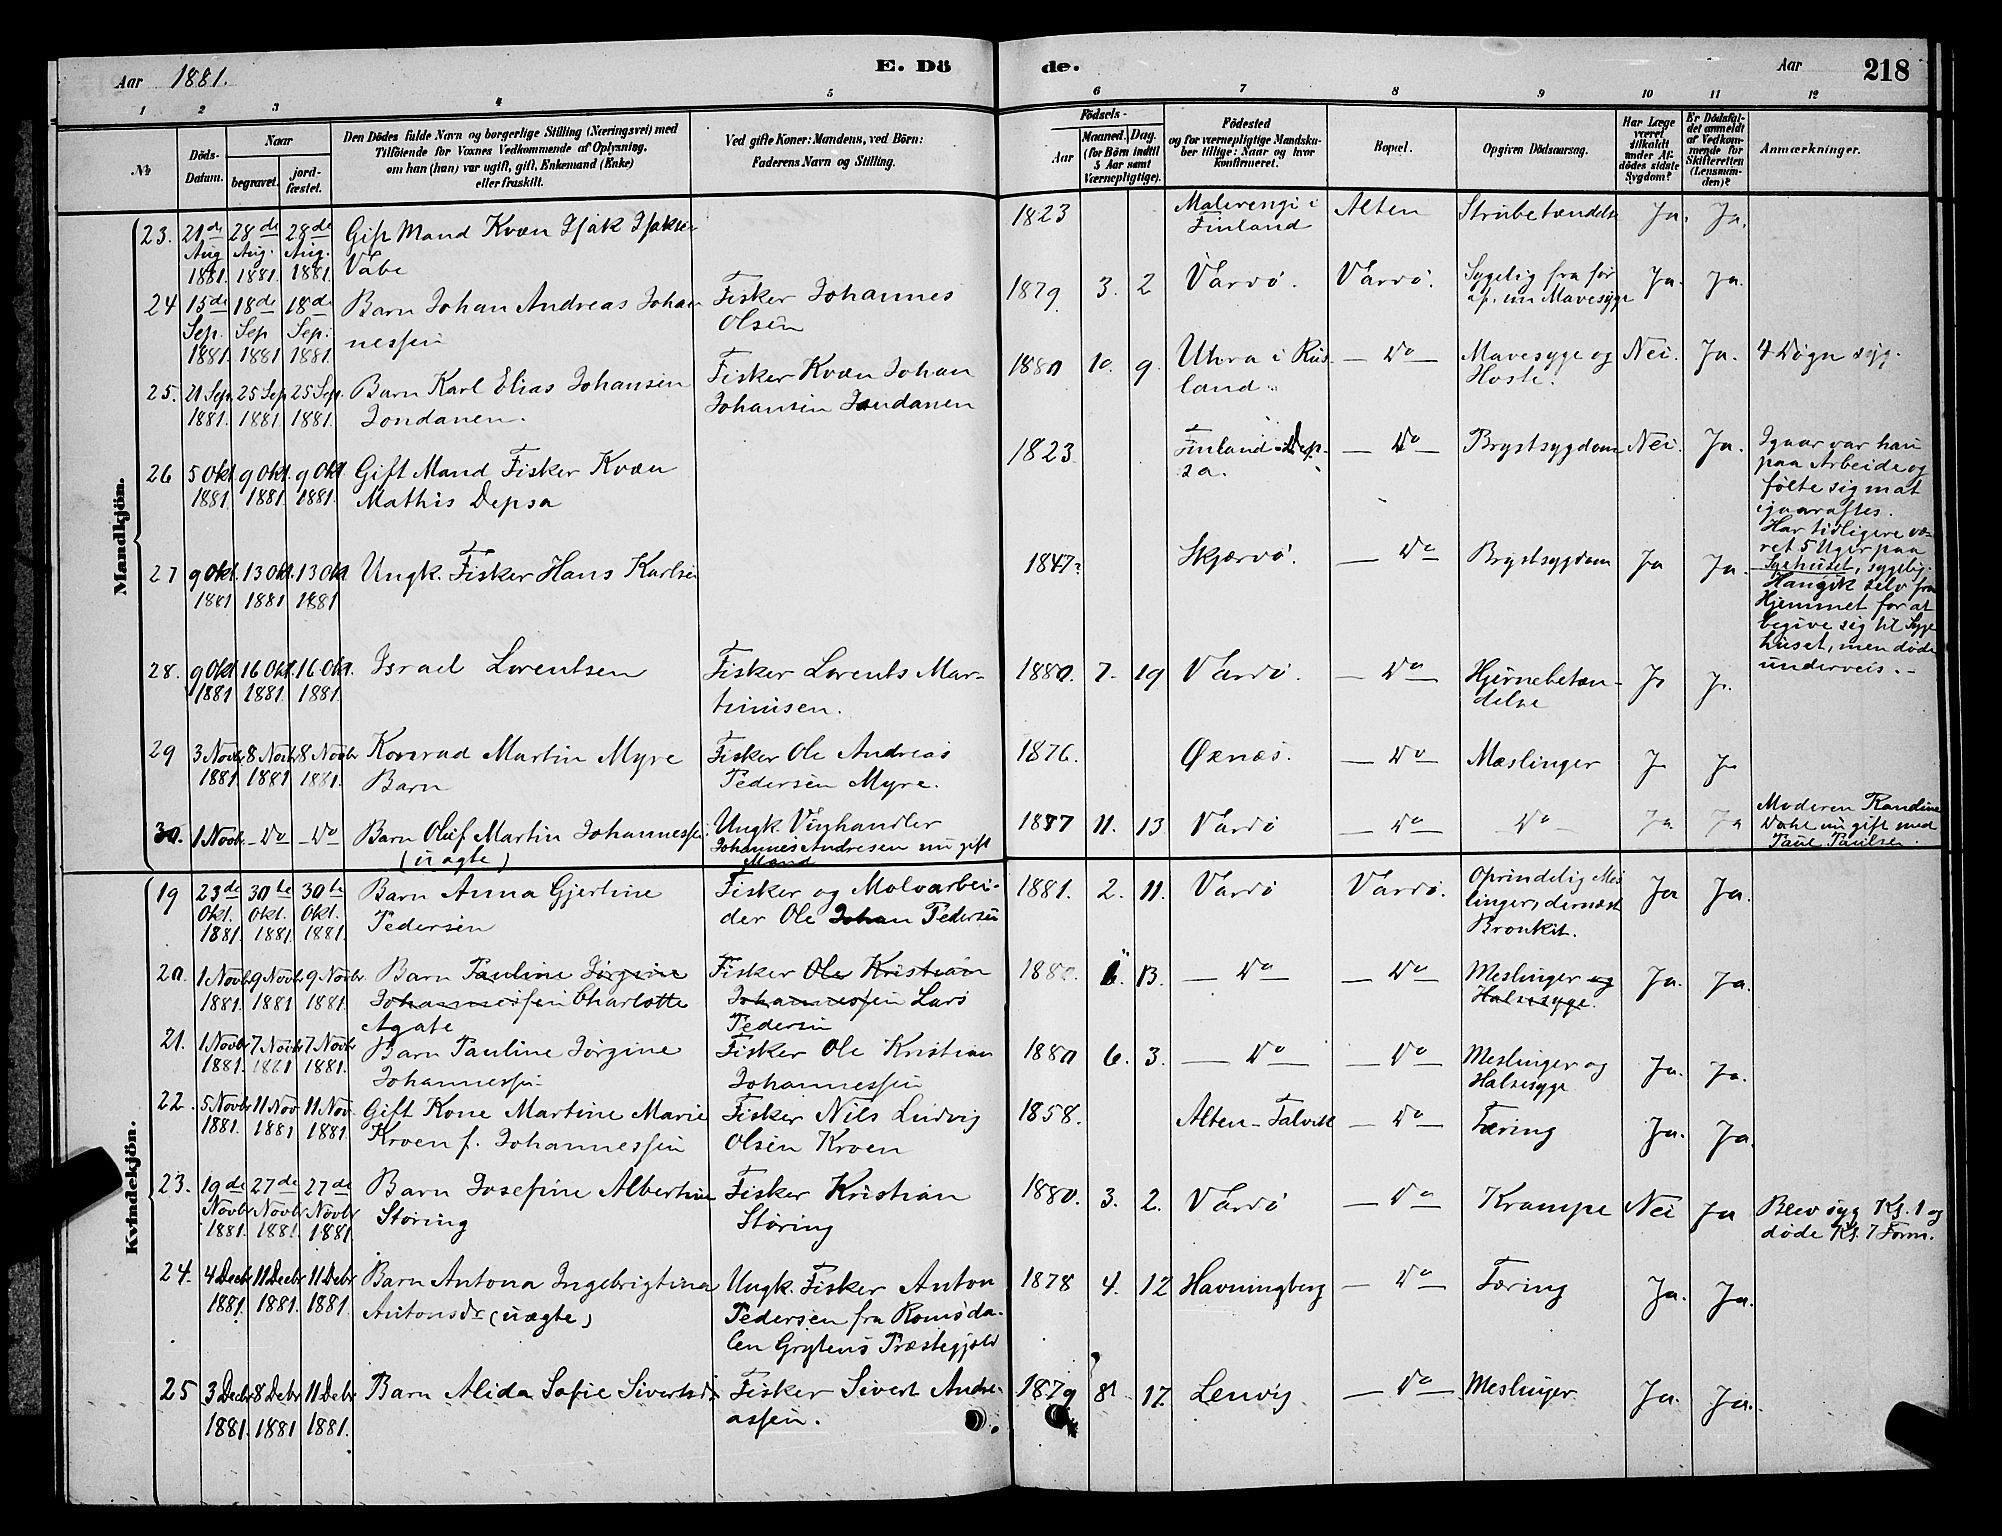 Aar 1881. E. Dö de. Aar 218
1 2 3 4 5 6 7 8 9 10 11 12
No
Döds-Datum.
Naar
begravet.
jord-fæstet.
Den Dödes fulde Navn og borgerlige Stilling (Næringsvei) med
Tilföiende for Voxnes Vedkommende af Oplysning,
om han (hun) var ugift, gift, Enkemand (Enke)
eller fraskilt.
Ved gifte Koner: Mandens, ved Börn:
Faderens Navn og Stilling.
Födsels-
Aar
Maaned. Dag.
(for Börn indtil
5 Aar samt
Værnepligtige).
Födested
og for værnepligtige Mandska-
ber tillige: Naar og hvor
konfirmeret.
Bopæl.
Opgiven Dödsaarsag.
Har Læge
været
tilkaldt
under Af-
dödes sidste
Sygdom?
Er Dödsfal-
det anmeldt
af Vedkom-
mende for
Skifteretten
(Lensman-
den)?
Anmærkninger.
Mandkjön.
23. 21de Aug 1881. 28de Aug. 1881. 28de Aug. 1881. Gift Mand Kvæn Isak Isaksen
Vabe
1823 Alten Strubetændelse Ja. Ja.
Finland
24 15de Sep. 1881. 18de Sep 1881 18de Sep: 1881. Barn Johan Andreas Johan
nessen
Fisker Johannes
Olsen
1879 3. 2 Vardø. Vardø. Sygelig fra før
Mavesyge Ja. Ja.
25. 21 Sep. 1881. 25 Sep 1881. 25 Sep. 1881 Barn Karl Elias Johansen
Jondanen.
Fisker Kvæn Johan
Johansen Jondanen
1880 10. 9. i Rus
land.
— Do — Mavesyge og
Hoste. Nei. Ja. 4 Døgn syg.
26 5 Okt 1881. 9 Okt. 1881. 9 Okt 1881. Gift Mand Fisker Kvæn
Mathis Depsa
1823 Finland Dep
sa.
— Do Brystsygdom Nei. Ja. Igaar var han
paa Arbeide og
følte sig mat
igaaraftes.
Har tidligere væ-
ret 5 Uger paa
Sygehuset, sygelig.
27 9 Okt. 1881 13 Okt. 1881 13 Okt 1881 Ungk. Fisker Hans Karlsen
1847? Skjærvø. — Do — Brystsygdom Ja Ja. Han gik selv fra
Hjemmet for at
begive sig til Syge
huset, men døde
underveis. -
28. 9 Okt 1881 16 Okt. 1881. 16 Okt. 1881. Israel Lorentsen
Fisker Lorents Mar-
tinusen.
1880. 7. 19 Vardø. — Do — Hjernebetæn-
delse Ja Ja.
29 3 Novbr 1881. 8 Novbr 1881 8 Novbr 1881. Konrad Martin Myre
Barn
Fisker Ole Andreas
Pedersen Myre.
1876. Øxnæs. — Do — Mæslinger Ja Ja
30. 1 Novb. — Do — Do Barn Oluf Martin Johannessen.
(uægte)
Ungk. Vinhandler
Johannes Andresen nu gift
Mand
1877 11. 13 Vardø — Do — — Do — Ja Ja Moderen Randine
Dahl nu gift med
Paul Paulsen.
Kvindekjön.
19 23de Okt. 1881. 30te Okt. 1881. 30te Okt. 1881. Barn Anna Gjertine
Pedersen
Fisker og Molvarbei-
der Ole Johan Pedersen
1881. 2. 11. Vardø Vardø. Oprindelig Mes
linger, dernæst
Bronkit. Ja Ja.
20. 1 Novbr 1881. 9 Novbr 1881 9 Novbr. 1881. Barn Pauline Jørgine
Johannessen Charlotte
Agate
Fisker Ole Kristian
Johannessen Lars
Pedersen
1880. 6. 13. — Do — Do — Meslinger og
Halssyge. Ja. Ja.
21. 1 Novbr 1881. 7 Novbr 1881 7 Novbr 1881. Barn Pauline Jørgine
Johannessen
Fisker Ole Kristian
Johannessen
1880 6. 3. — Do — — Do — Meslinger og
Halssyge Ja. Ja.
22. 5 Novbr 1881. 11 Nov. 1881 11 Nov 1881. Gift Kone Martine Marie
Kroen f. Johannessen
Fisker Nils Ludvig
Olsen Kroen
1858. Alten-Talvik — Do — Tæring Ja. Ja.
23. 19de Novbr 1881. 27de Novbr 1881. 27de Novbr 1881 Barn Josefine Albertine
Støring
Fisker Kristian
Støring
1880. 3. 2. Vardø — Do — Krampe Nei Ja Blev syg Kl. 1 og
døde Kl. 7 Form.
24. 4 Decbr 1881. 11 Decbr 1881. 11 Debr 1881. Barn Antona Ingebrigtina
Antonsdr (uægte)
Ungk. Fisker Anton
Pedersen fra Romsda-
len Grytens Præstegjeld
1878 4. 12 Havningberg — Do — Tæring Ja. Ja.
25 3 Decbr 1881. 8 Debr 1881 11 Debr 1881. Barn Alida Sofie Sivertsdr
Fisker Sivert Andre-
assen.
1879 8. 17. Lenvig — Do — Meslinger Ja. Ja.